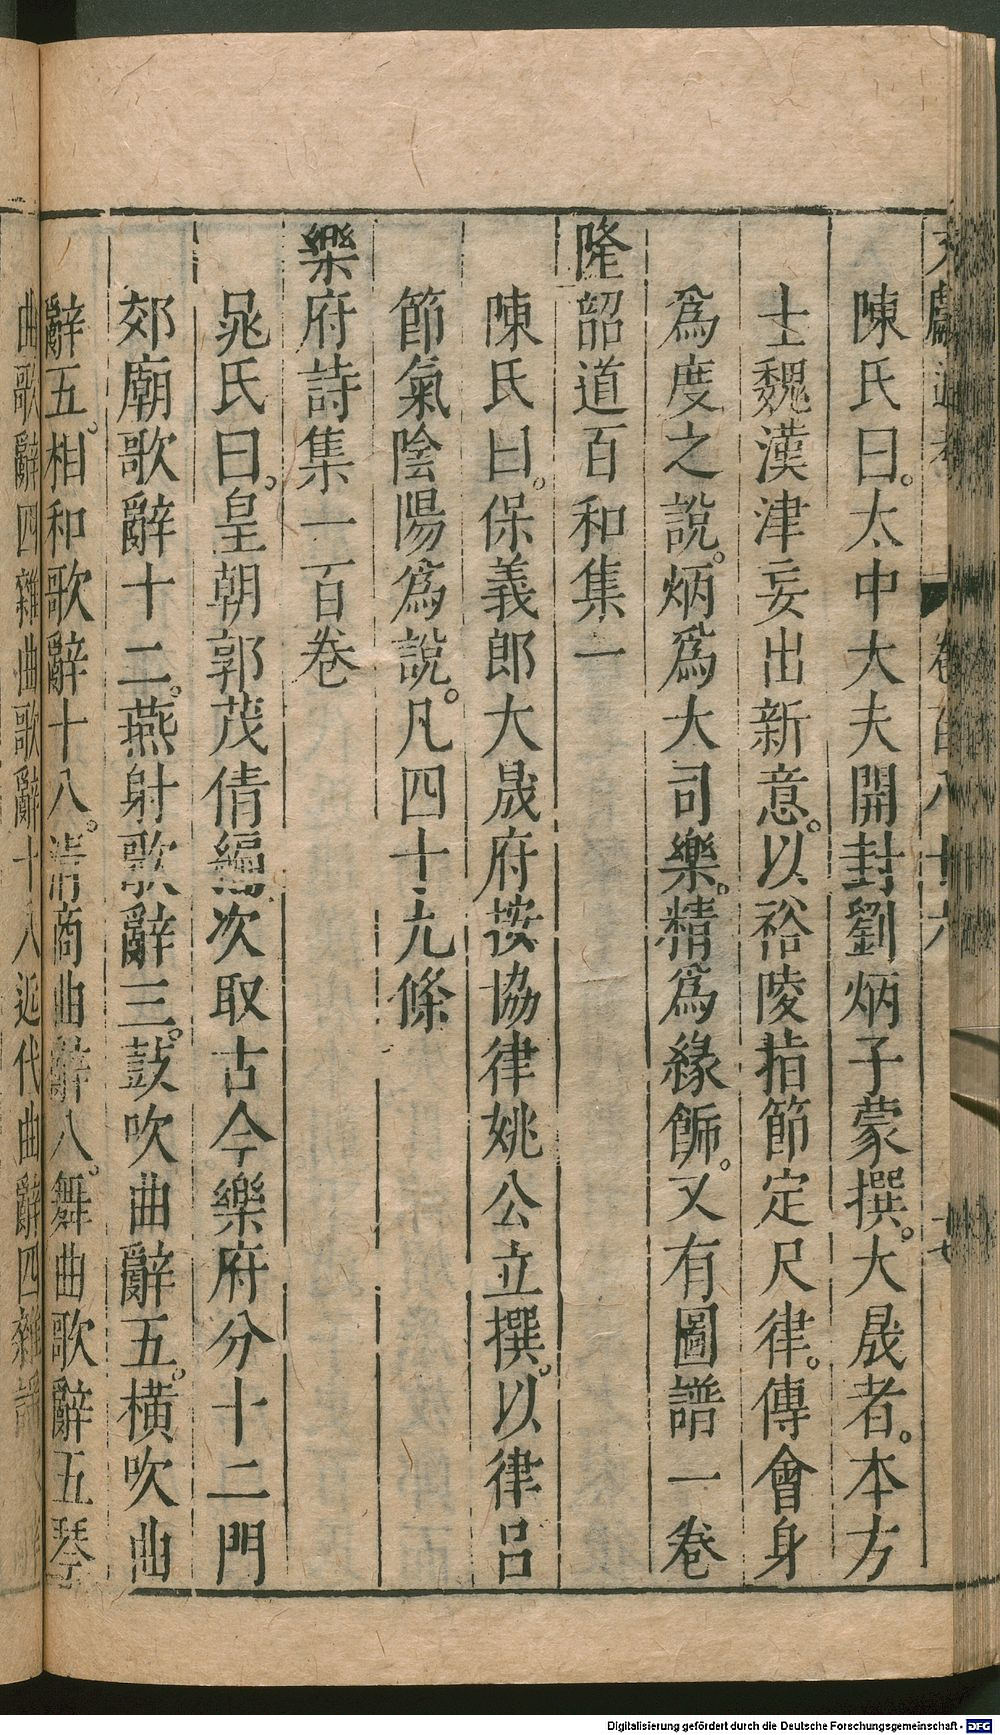 文獻通考 卷百八十六 十七
陳氏曰。太中大夫開封劉炳子蒙撰。大晟者。本方
士魏漢津妄出新意。以裕陵指節定尺律。傳會身
爲度之說。炳爲大司樂。精爲緣飾。又有圖譜一卷
隆韶道百和集一
陳氏曰。保義郎大晟府按協律姚公立撰。以律呂
節氣陰陽爲說。凡四十九條
樂府詩集一百卷
晁氏曰。皇朝郭茂倩編次取古今樂府分十二門
郊廟歌辭十二。燕射歌辭三。鼓吹曲辭五。橫吹曲
辭五。相和歌辭十八。清商曲辭八。舞曲歌辭五琴
曲歌辭四雜曲歌辭十八近代曲辭四雜謠
Digitalisierung gefördert durch die Deutsche Forschungsgemeinschaft - DFG